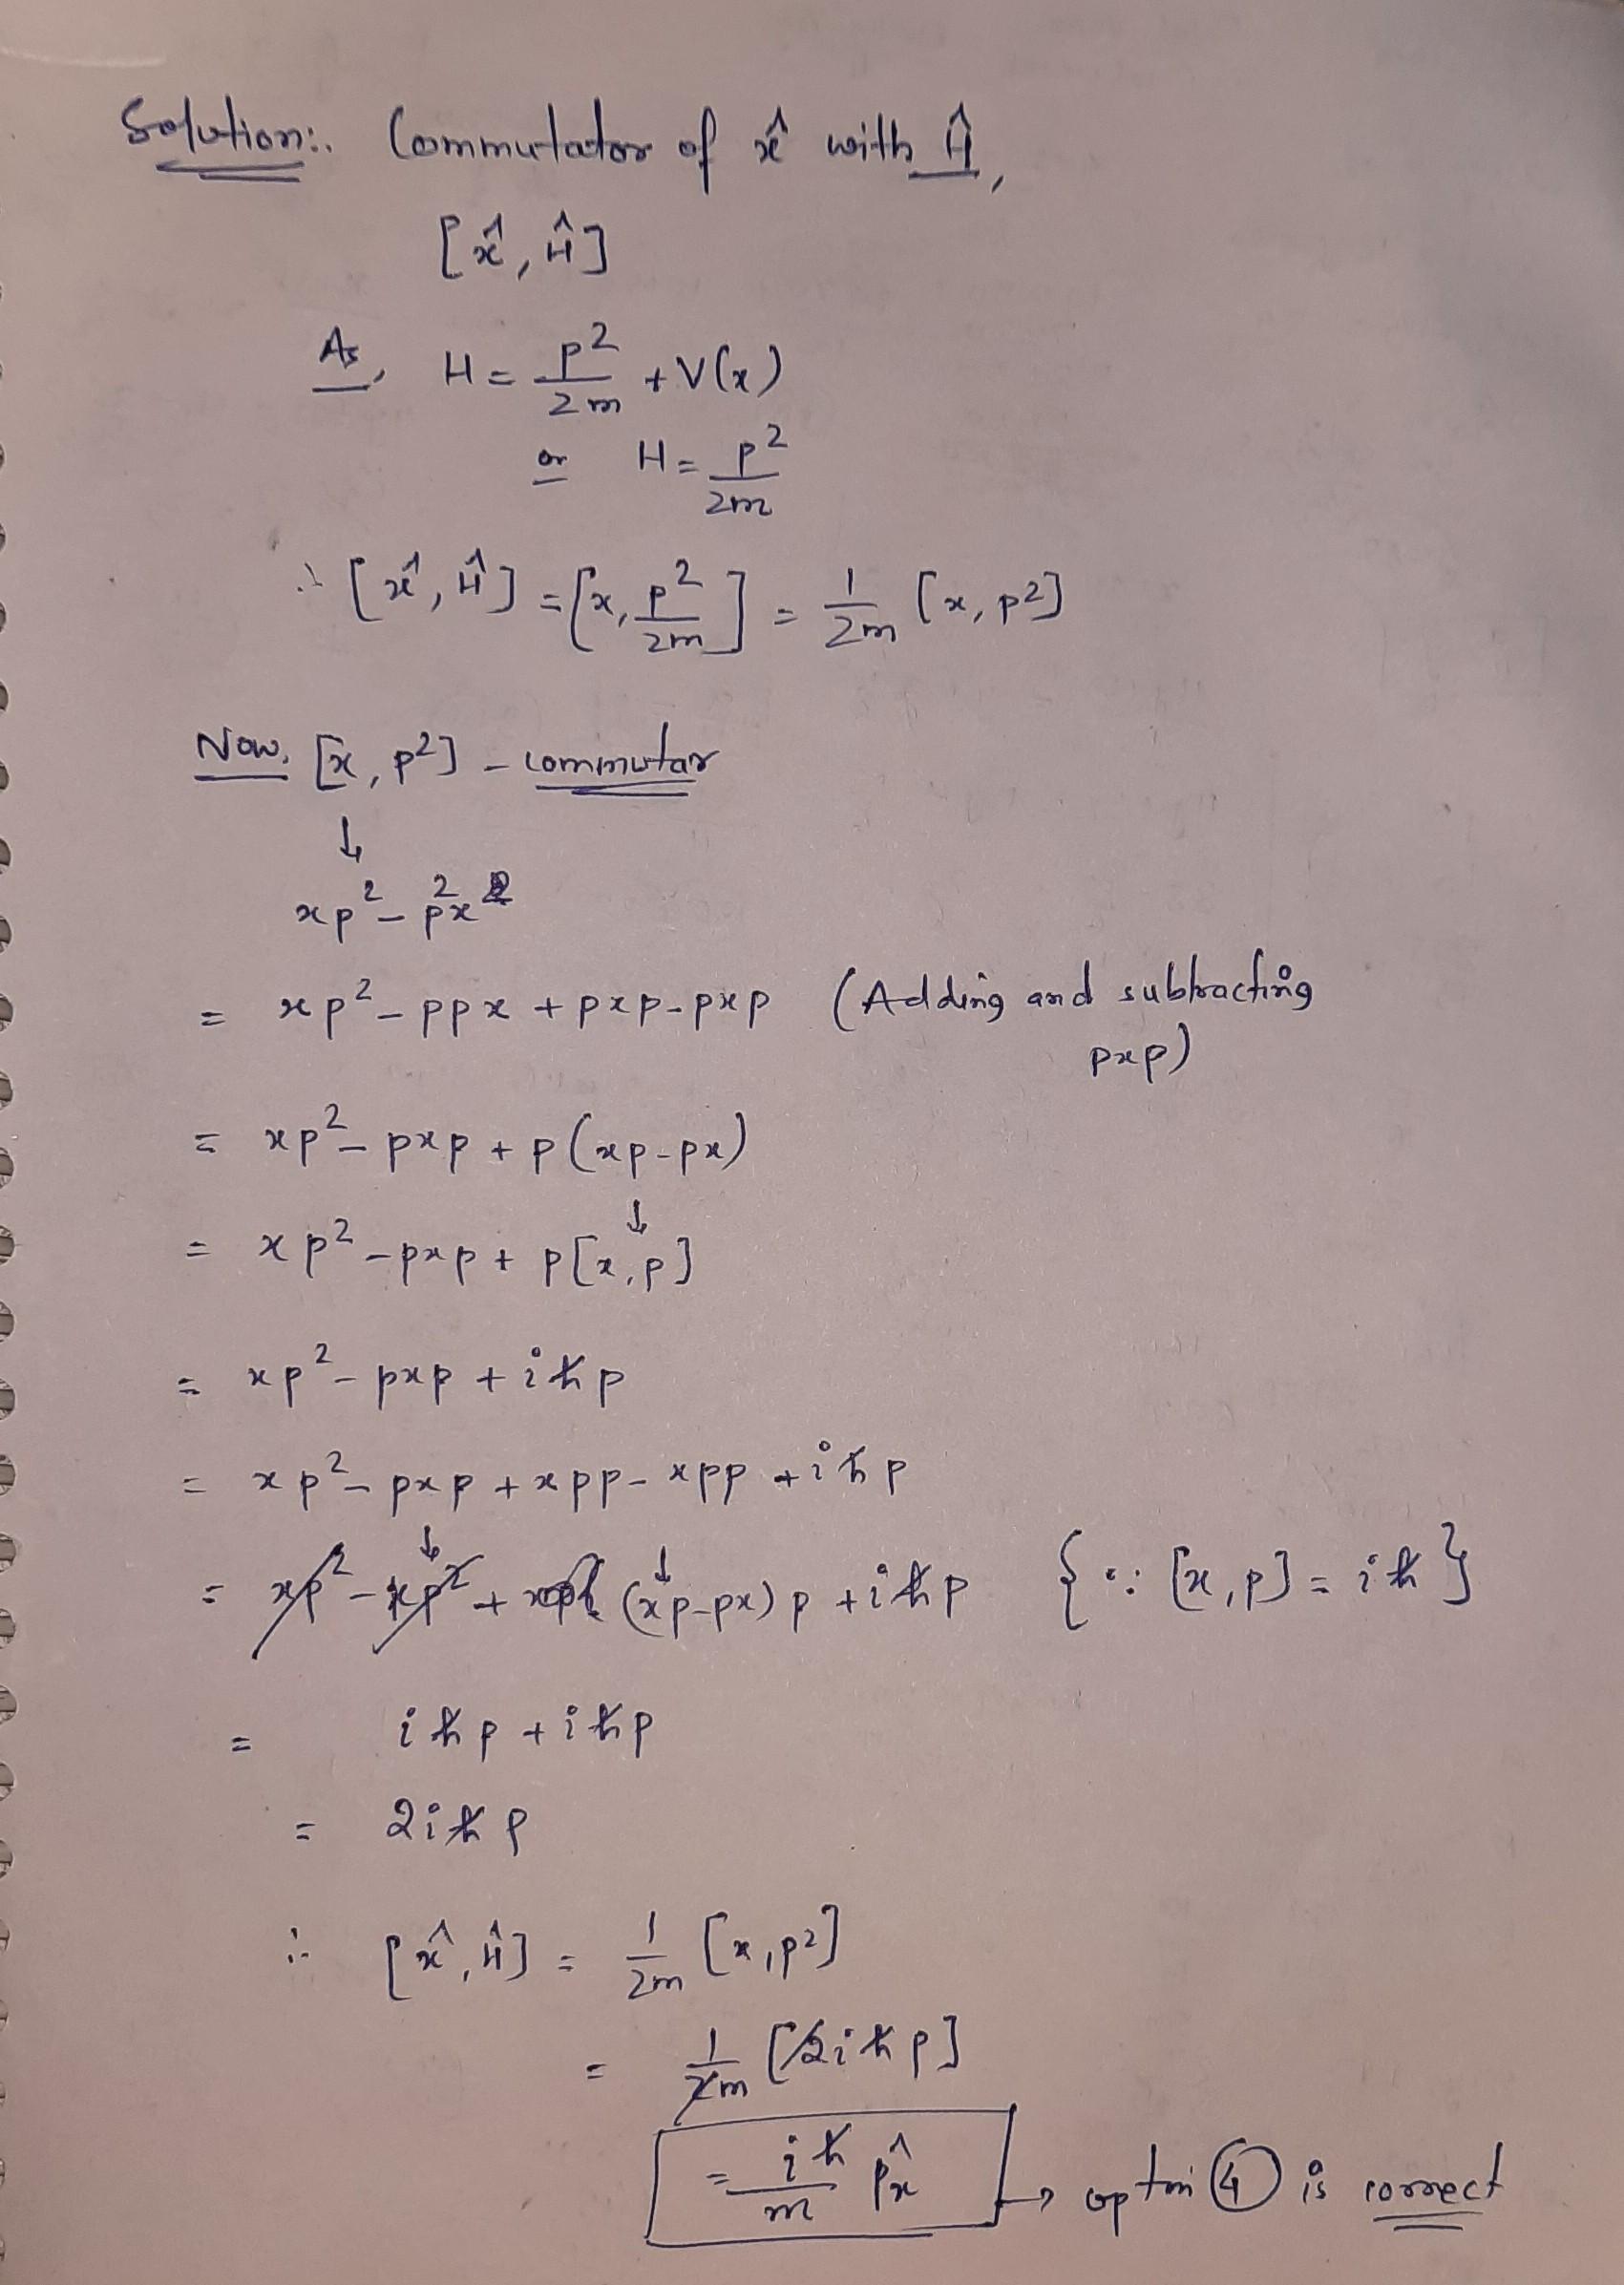 Solution:. Commutator of x̂ with Ĥ,
[x̂, Ĥ]
As, H = p²/2m + V(x)
or H = p²/2m
∴ [x̂, Ĥ] = [x, p²/2m] = 1/2m [x, p²]
Now, [x, p²] - commutar
↓
xp² - p²x
= xp² - ppx + pxp - pxp (Adding and subtracting
pxp)
= xp² - pxp + p(xp - px)
↓
= xp² - pxp + p[x, p]
= xp² - pxp + iħp
= xp² - pxp + xpp - xpp + iħp
= xp² - xp² + (xp - px)p + iħp {∵ [x, p] = iħ}
= iħp + iħp
= 2iħp
∴ [x̂, Ĥ] = 1/2m [x, p²]
= 1/2m [2iħp]
= iħ/m p̂x → optoin ④ is correct